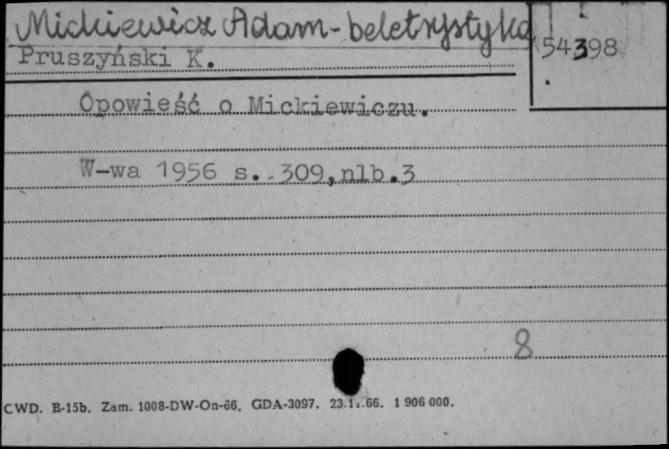 Mickiewicz Adam - beletrystyka
54398
Pruszyński K.
Opowieść o Mickiewiczu.
W-wa 1956 s. 309,nlb.3
8
CWD. B-15b. Zam. 1008-DW-On-66. GDA-3097. 23.11.66. 1 906 000.